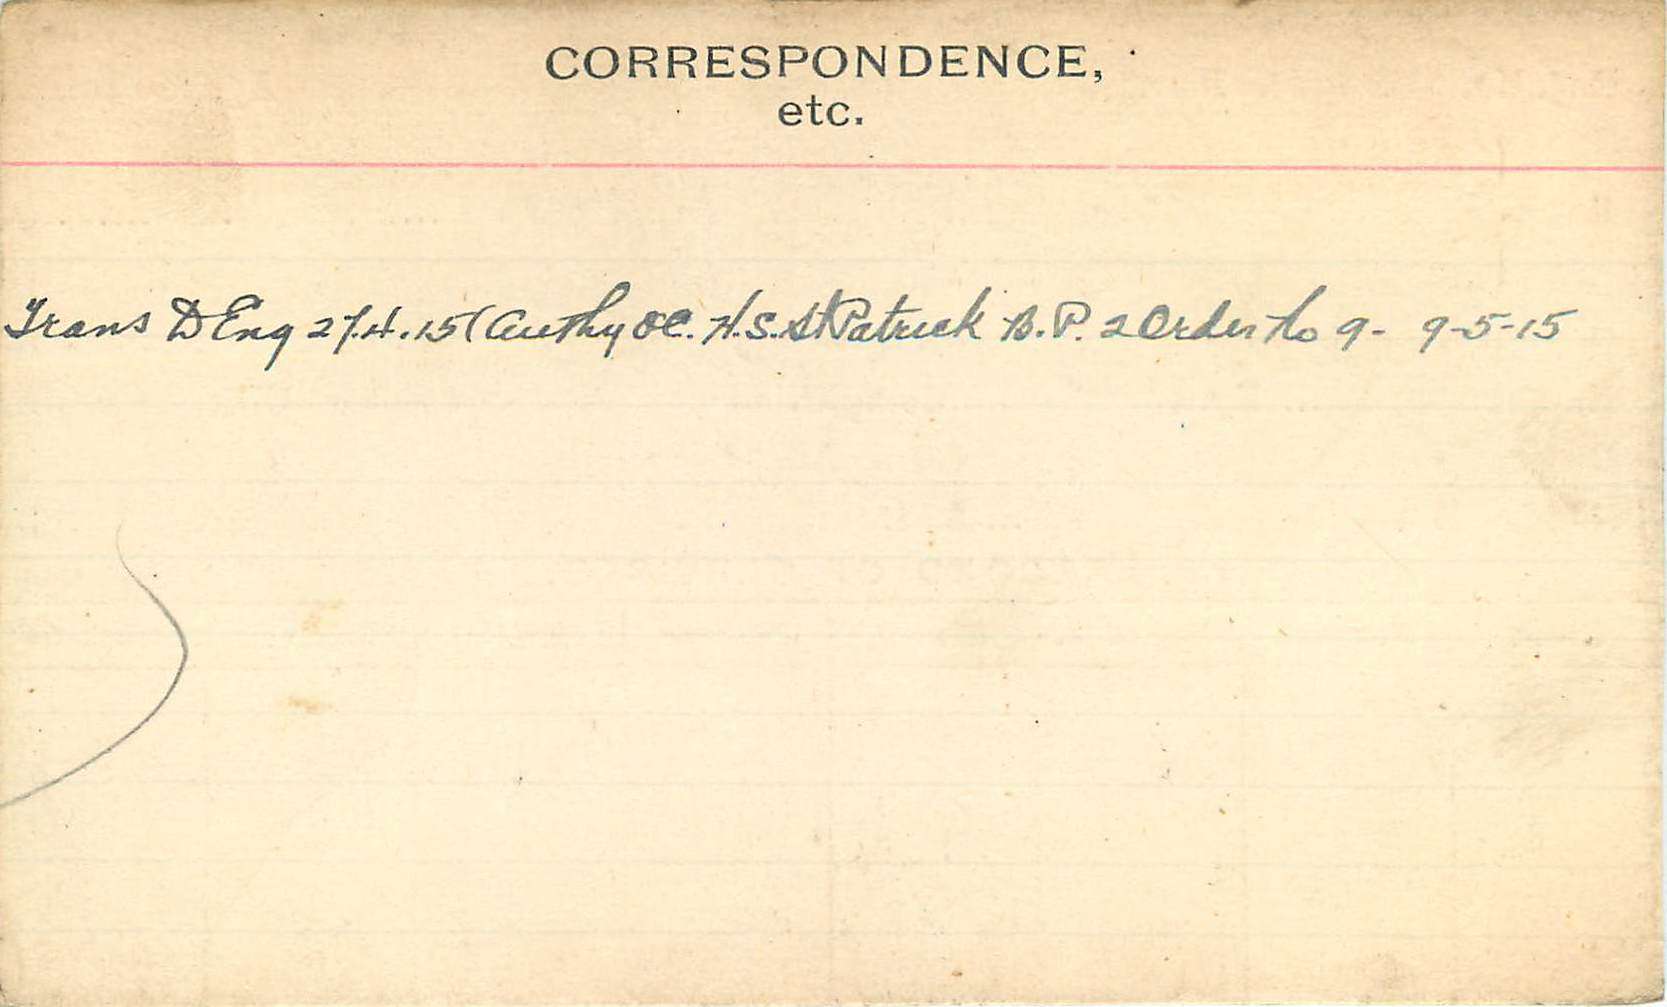 CORRESPONDENCE,
etc.
Trans to Eng 27.4.15 (Authy OC. H.S. St Patrick B.P. 2 Order No 9- 9-5-15